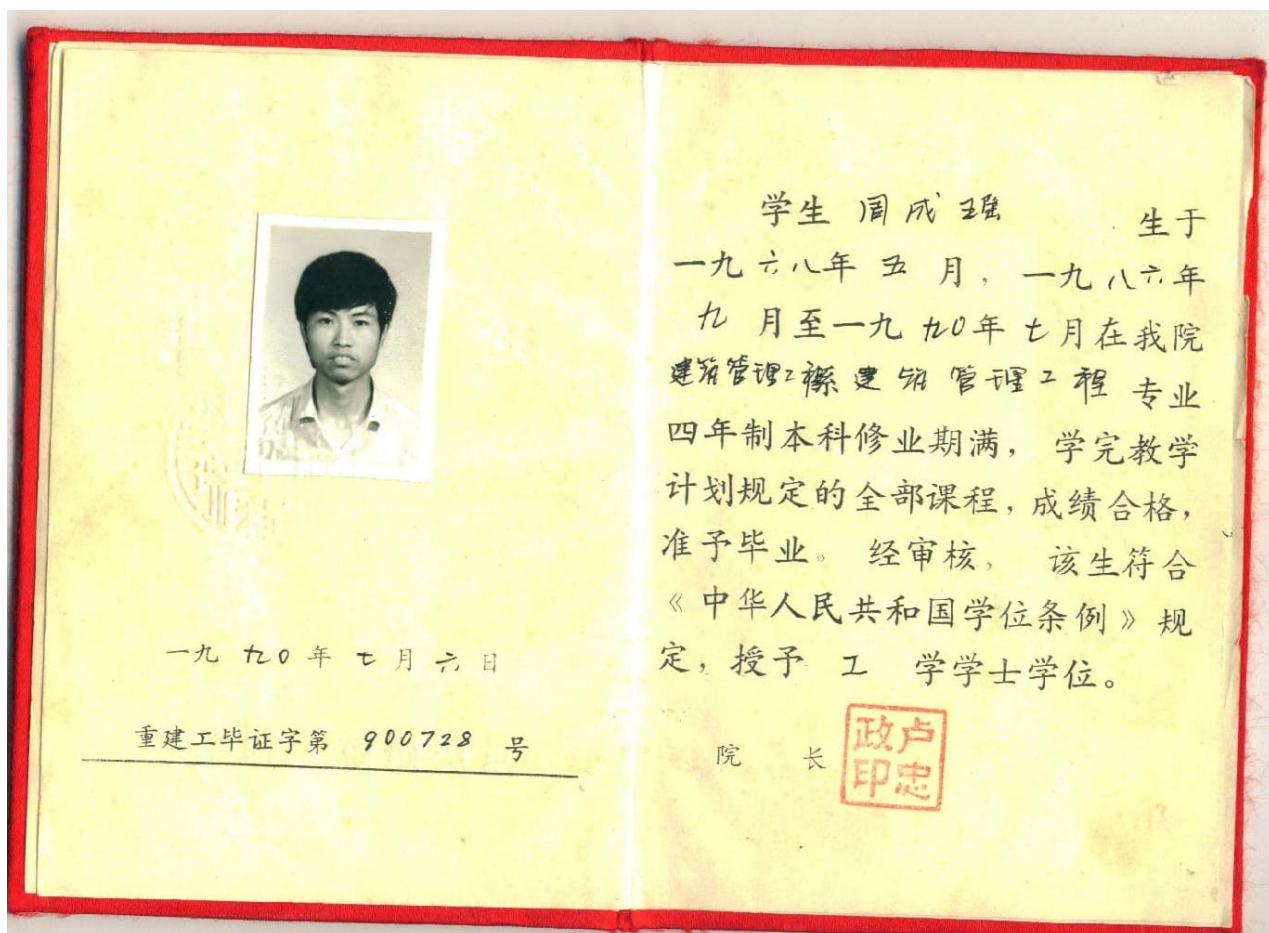 一九九0年七月六日
重建工毕证字第 900728 号
学生 周成 生于
一九六八年 五 月，一九八六年
九 月至一九九0年七月在我院
建筑管理工程系建筑管理工程 专业
四年制本科修业期满，学完教学
计划规定的全部课程，成绩合格，
准予毕业。经审核，该生符合
《中华人民共和国学位条例》规
定，授予 工 学学士学位。
院 长
卢忠
政印